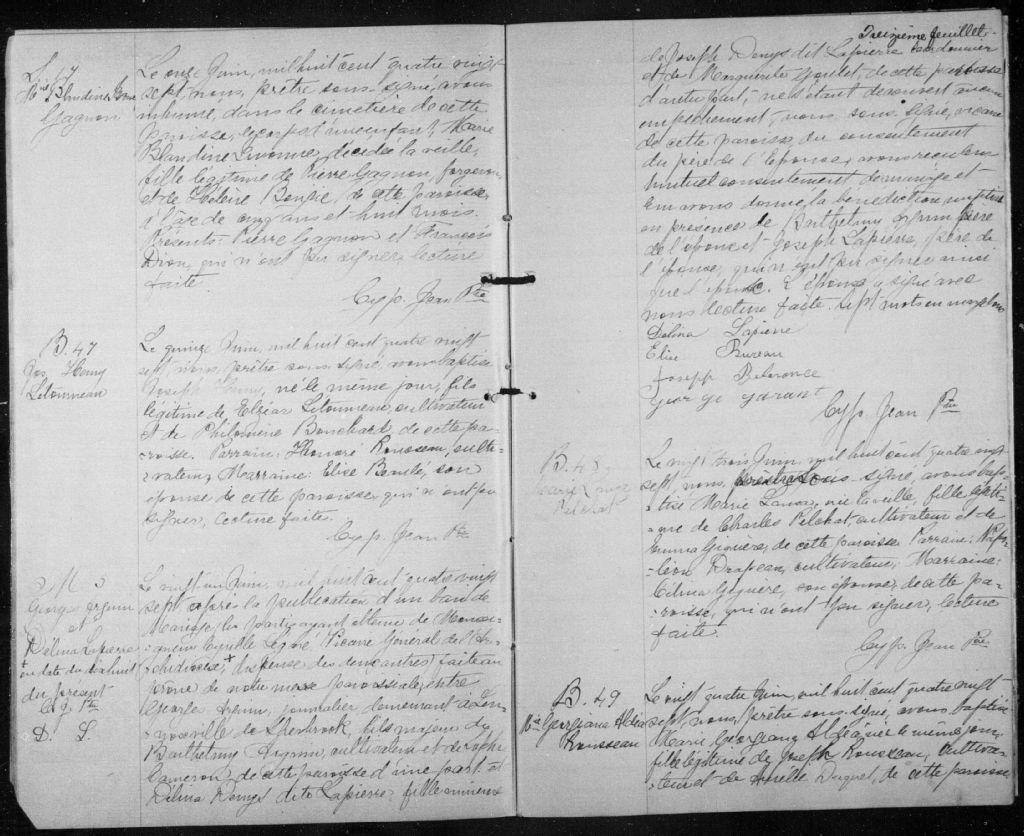 S. 17
Mie Blandine Yvonne
Gagnon
Le onze Juin, mil huit cent quatre vingt
sept, nous, prêtre sous-signé, avons
inhumé, dans le cimetière de cette
paroisse, le corps d'une enfant, Marie
Blandine Yvonne, décédée la veille,
fille légitime de Pierre Gagnon, forgeron,
et de Hélène de cette paroisse,
à l'âge de cinq ans et huit mois.
Présents: Pierre Gagnon et François
Dion, qui n'ont pu signer, lecture
faite.
Cyp. Jean Ptre
B. 47
Jos. Henry
Létourneau
Le quinze Juin, mil huit cent quatre vingt
sept, nous, prêtre sous-signé, avons baptisé
Joseph Henry, né le même jour, fils
légitime de Elzéar Létourneau, cultivateur
et de Philomène Bouchard, de cette pa-
roisse. Parrain: Honoré Rousseau, culti-
vateur, Marraine: Elise Boulé, son
épouse de cette paroisse, qui n'ont pu
signer, lecture faite.
Cyp. Jean Ptre
M
Georges
et
Délina Lapierre
+ en date du dixhuit
du présent
C. J. Ptre
D. L.
Le vingt un Juin, mil huit cent quatre vingt
sept, après la publication d'un ban de
Mariage, les parties ayant obtenu de Monsei-
gneur Cyrille Légaré, Vicaire Général de l'Ar-
chidiocèse, + dispense des deux autres, faite au
prône de notre messe paroissiale, entre
George journalier, demeurant à Len-
noxville de Sherbrook, fils majeur de
Barthélemy cultivateur et de Sophie
Cameron, de cette paroisse d'une part; et
Délina Denys dite Lapierre, fille mineure
Treizième feuillet.
de Joseph Denys dit Lapierre cordonnier
et de Marguerite Goulet, de cette paroisse
d'autre part; ne s'étant découvert aucun
empêchement, nous, sous-signé, vicaire
de cette paroisse, du consentement
du père de l'épouse, avons reçu leur
mutuel consentement de mariage et
leur avons donné la bénédiction nuptiale
en présence de Barthélemy père
de l'époux et Joseph Lapierre, père de
l'épouse, qui n'ont pu signer ainsi
que l'époux. L'épouse a signé avec
nous lecture faite. Sept mots en marge bons
Délina Lapierre
Elise Bureau
Joseph
George Garant
Cyp. Jean Ptre
B. 48
Marie
Pelchat
Le vingt trois Juin, mil huit cent quatre vingt
sept, nous, prêtre sous-signé, avons bap-
tisé Marie née la veille, fille légiti-
me de Charles Pelchat, cultivateur et de
Emma Giguère, de cette paroisse. Parrain: Napo-
léon Drapeau, cultivateur, Marraine:
Giguère, son épouse, de cette pa-
roisse, qui n'ont pu signer, lecture
faite.
Cyp. Jean Ptre
B. 49
Mie Georgiana
Rousseau
Le vingt quatre Juin, mil huit cent quatre vingt
sept, nous, prêtre sous-signé, avons baptisé
Marie Georgiana née le même jour,
fille légitime de Joseph Rousseau, cultiva-
teur et de Duquet, de cette paroisse